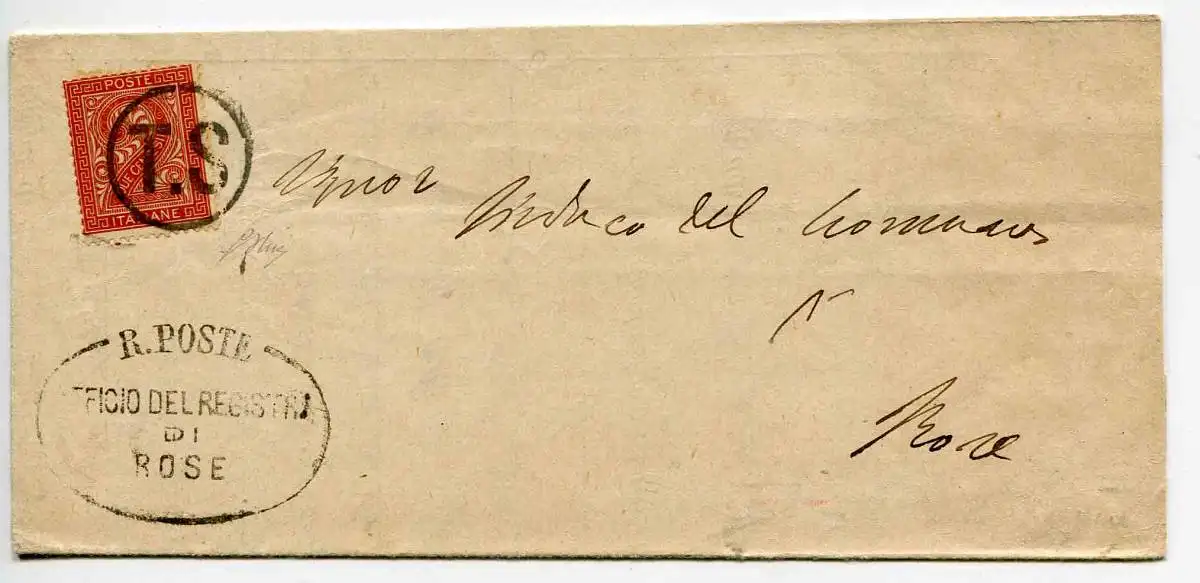 POSTE
T.S
ITALIANE
Signor
Sindaco del Comune
Rose
R. POSTE
UFFICIO DEL REGISTRO
DI
ROSE